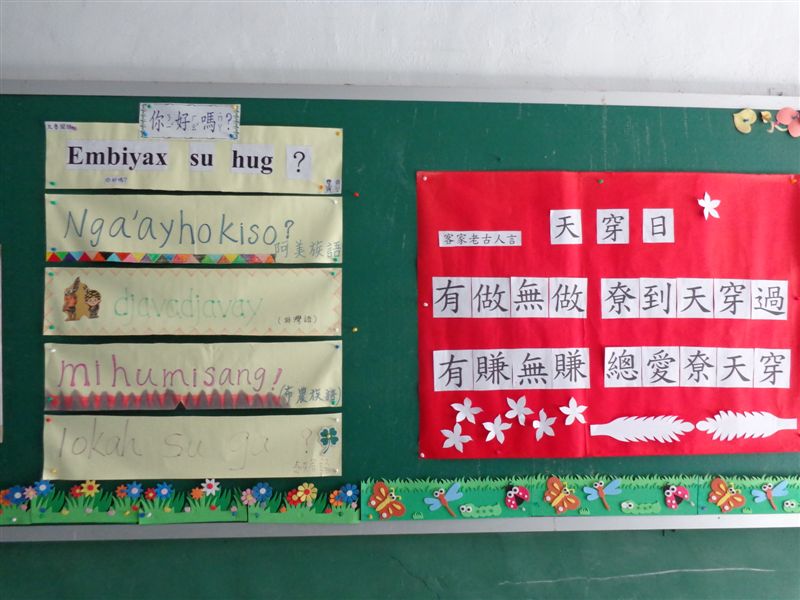 你好嗎?
Embiyax su hug ?
你好嗎?
Nga'ayho kiso?
阿美族語
djavadjavay
mihumisang!
(布農族語)
lokah su ga ?
客家老古人言
天穿日
有做無做 尞到天穿過
有賺無賺 總愛尞天穿